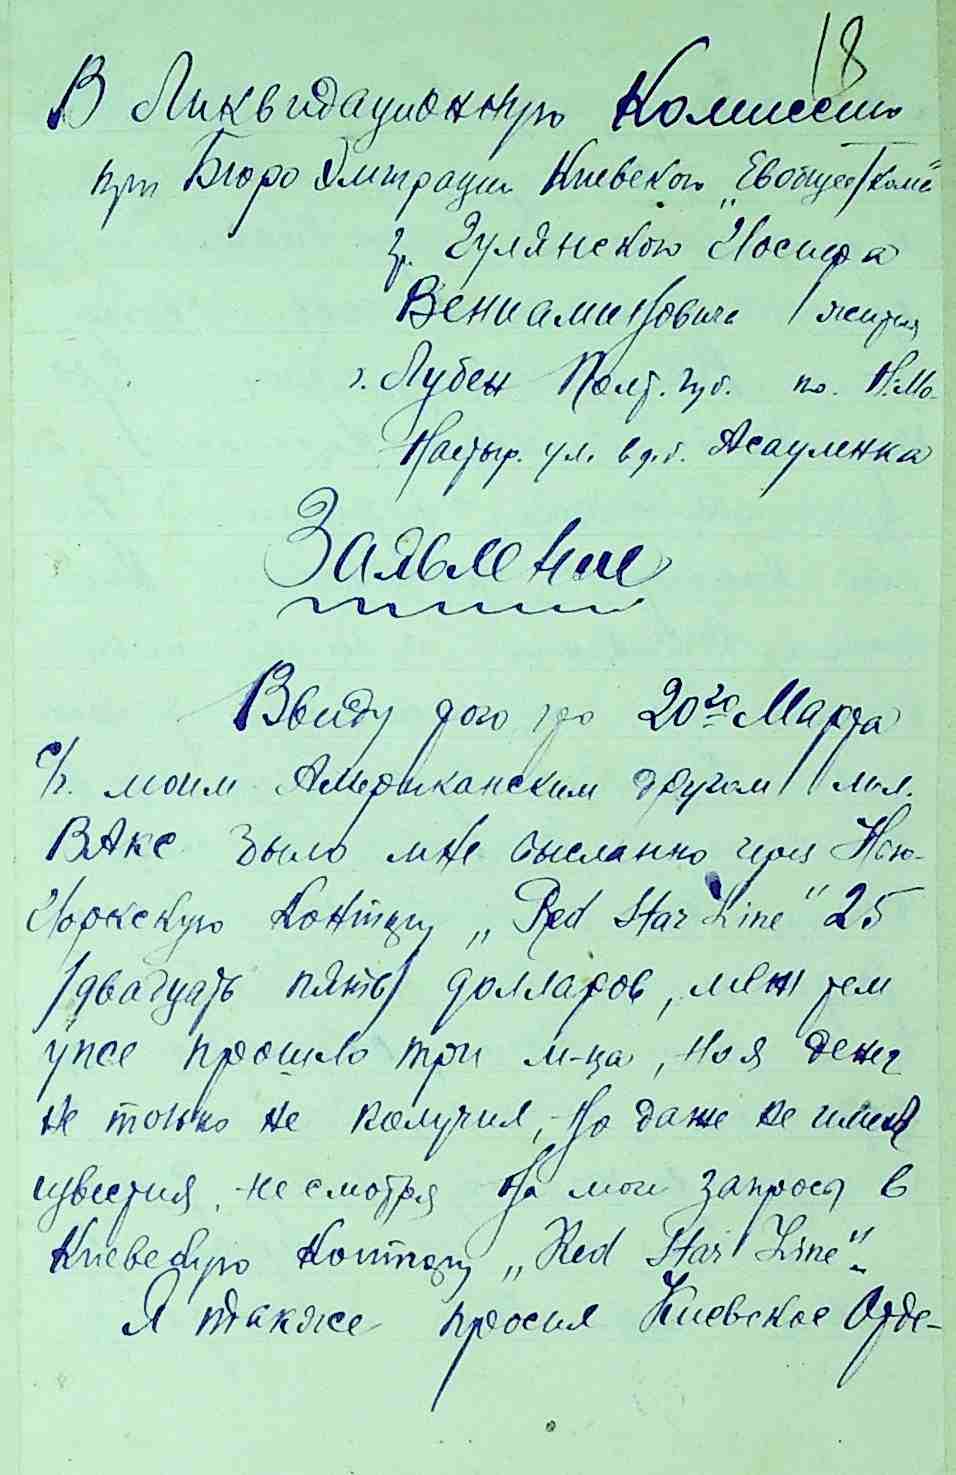 18
В Ликвидационную Комиссию
при Бюро Эмиграции Киевского „Евобщес/ком"
гр. Гулянского Иосифа
Вениаминовича / жител
г. Лубен Полт. губ. по. Н.Мо-
настыр. ул. в д. Асауленка
Заявление
Ввиду того что 20го Марта
с/г. моим Американским другом
Вакс было мне выслано через Нью-
Йоркскую контору „Red Star Line" 25
/двадцать пять/ долларов, меж тем
уже прошло три м-ца, но я денег
не только не получил, но даже не имею
известия, не смотря на мои запросы в
Киевскую контору „Red Star Line".
Я также просил Киевское Отде-